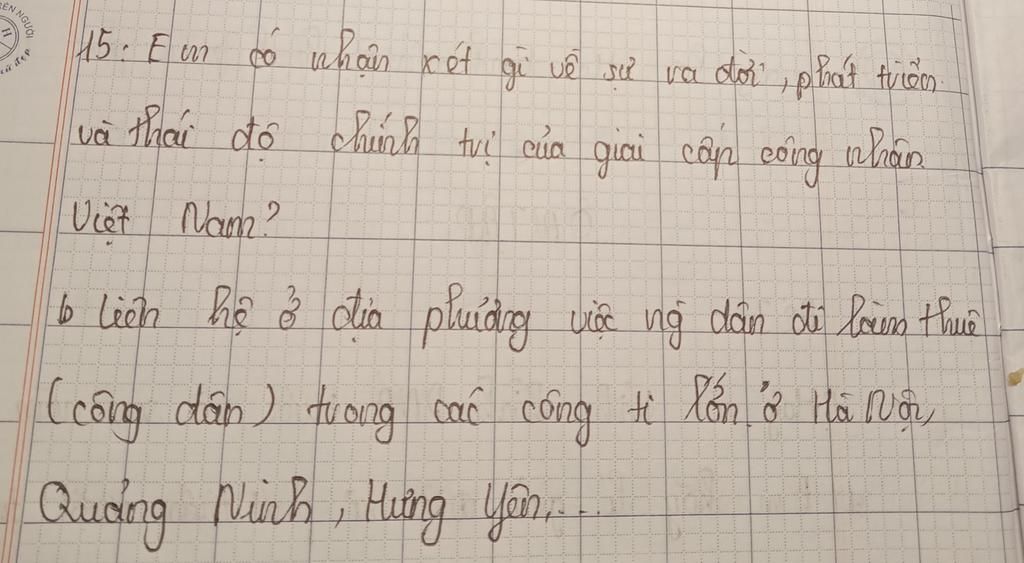 ÊN NGƯỜI
15. Em có nhận xét gì về sự ra đời, phát triển
và thái độ chính trị của giai cấp công nhân
Việt Nam?
b Liên hệ ở địa phương việc ng dân đi làm thuê
(công dân) trong các công ti lớn ở Hà Nội,
Quảng Ninh, Hưng Yên,...